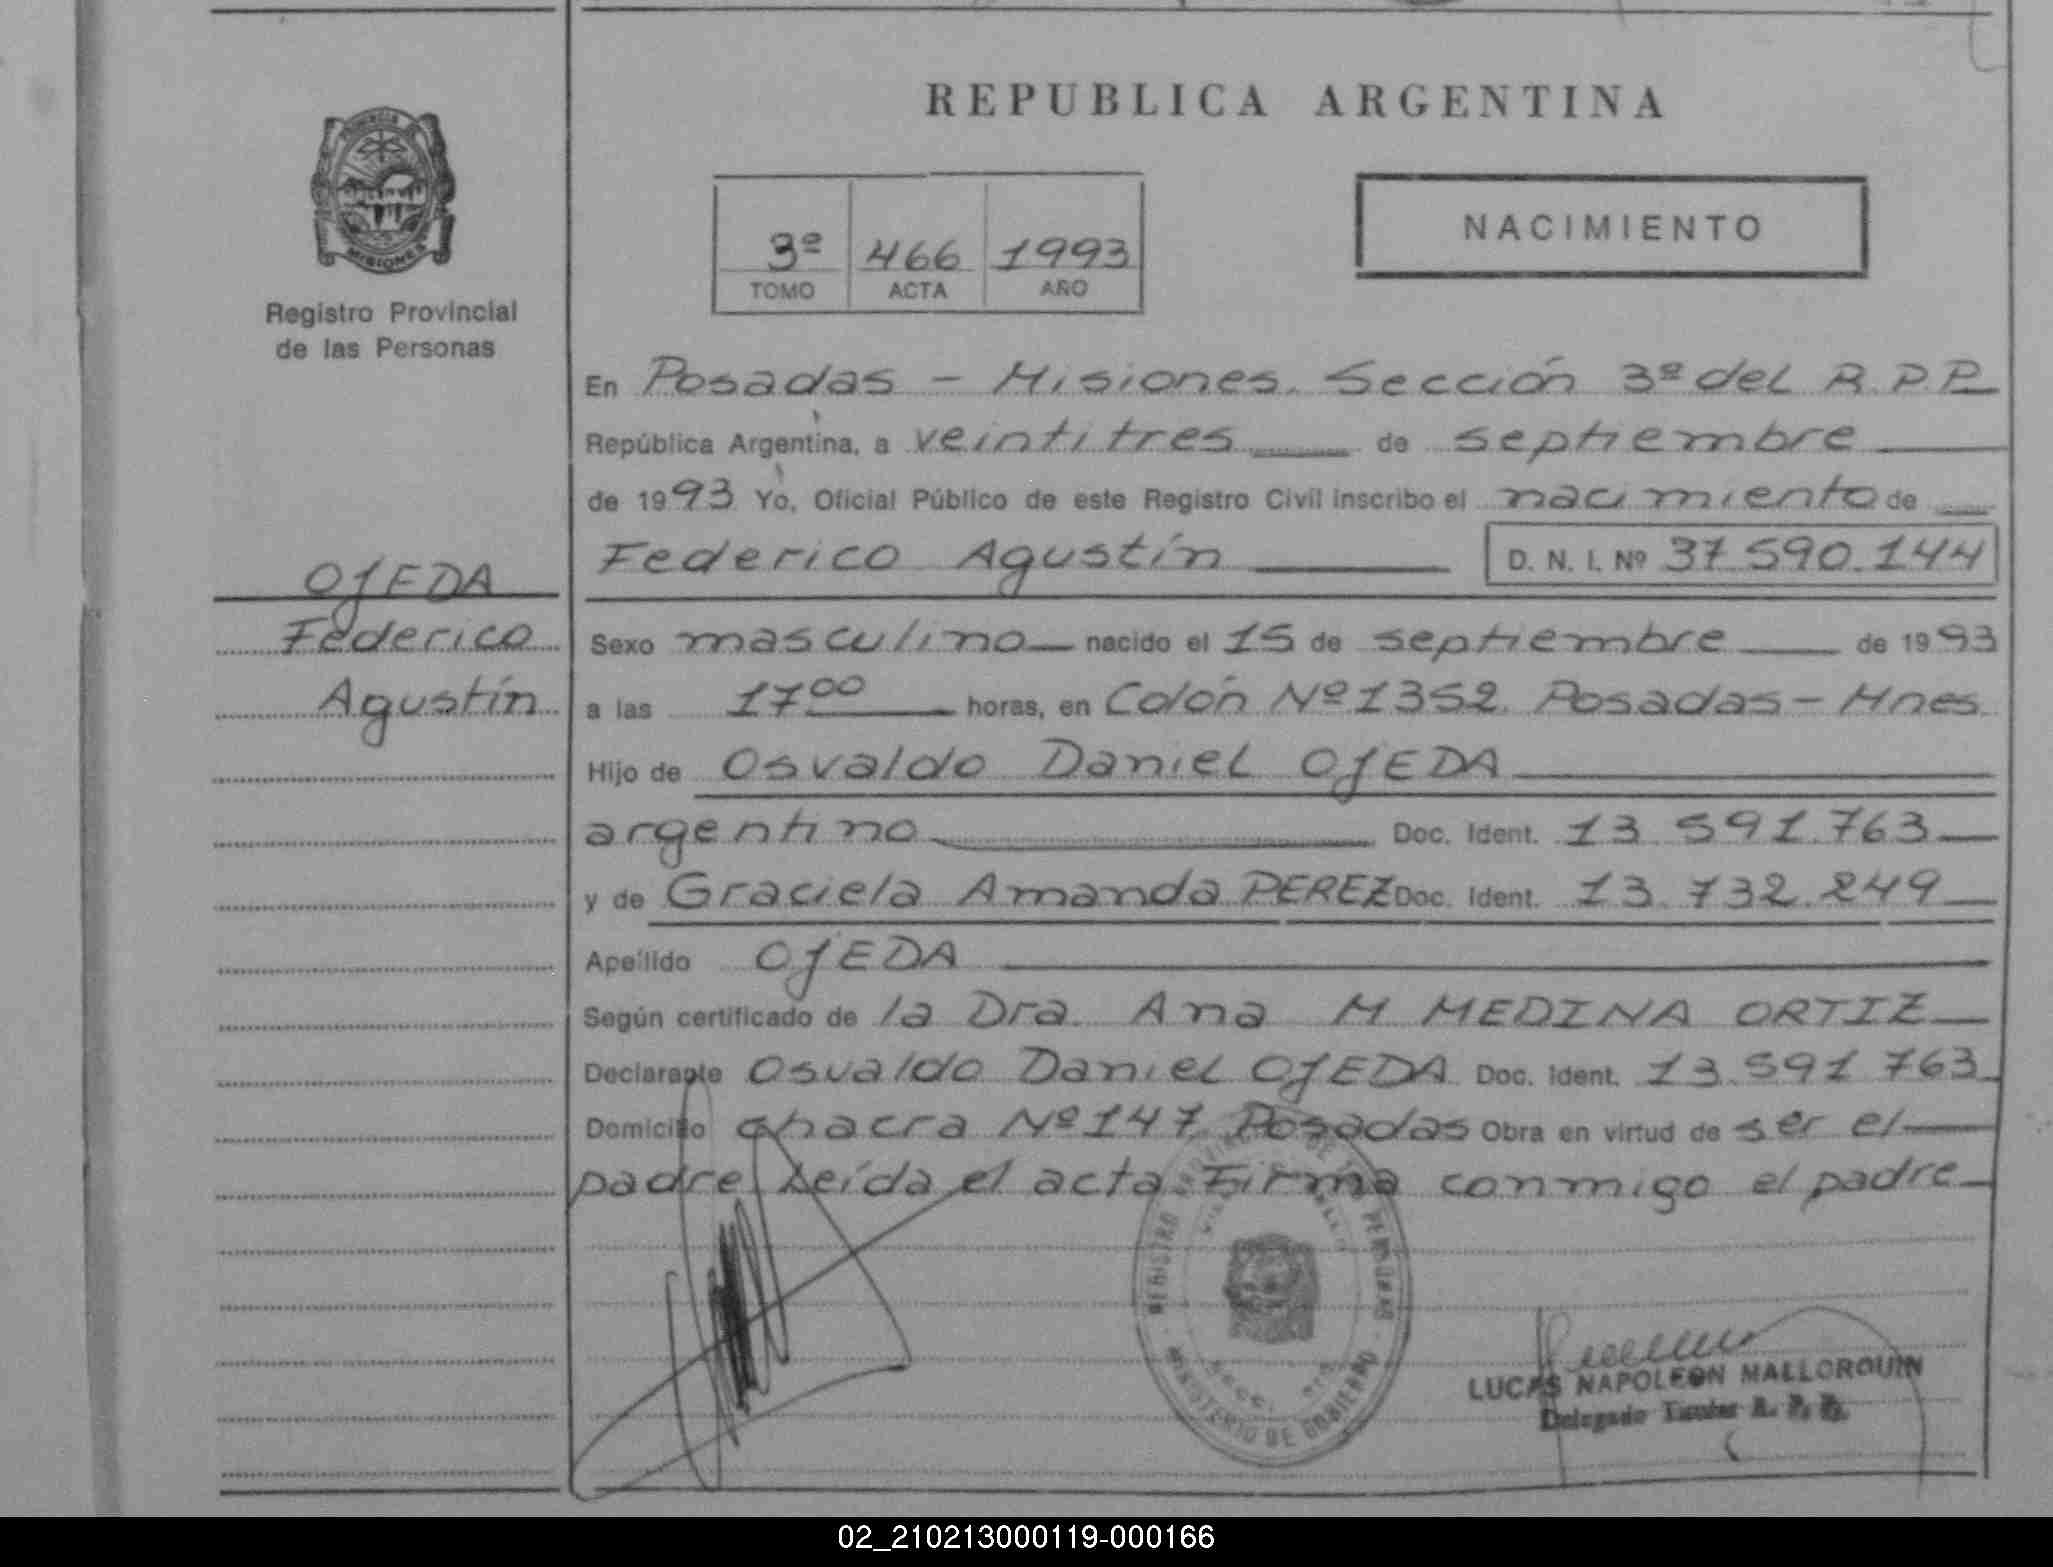 REPUBLICA ARGENTINA
PROVINCIA DE
MISIONES
Registro Provincial
de las Personas
3º 466 1993
TOMO ACTA AÑO
NACIMIENTO
En Posadas - Misiones. Sección 3ª del R.P.P.
República Argentina, a veintitres de septiembre
de 1993 Yo, Oficial Público de este Registro Civil inscribo el nacimiento de
Federico Agustín D. N. I. Nº 37.590.144
OJEDA
Federico
Agustín
Sexo masculino nacido el 15 de septiembre de 1993
a las 17⁰⁰ horas, en Colón Nº 1352. Posadas - Mnes
Hijo de Osvaldo Daniel OJEDA
argentino Doc. Ident. 13.591.763
y de Graciela Amanda PEREZ Doc. Ident. 13.732.249
Apellido OJEDA
Según certificado de la Dra. Ana M MEDINA ORTIZ
Declarante Osvaldo Daniel OJEDA Doc. Ident. 13.591.763
Domicilio chacra Nº 147 Posadas Obra en virtud de ser el
padre Leída el acta Firma conmigo el padre
REGISTRO PROVINCIAL DE LAS PERSONAS
MINISTERIO DE GOBIERNO
LUCAS NAPOLEON MALLORQUIN
Delegado Titular R. P. P.
02_210213000119-000166